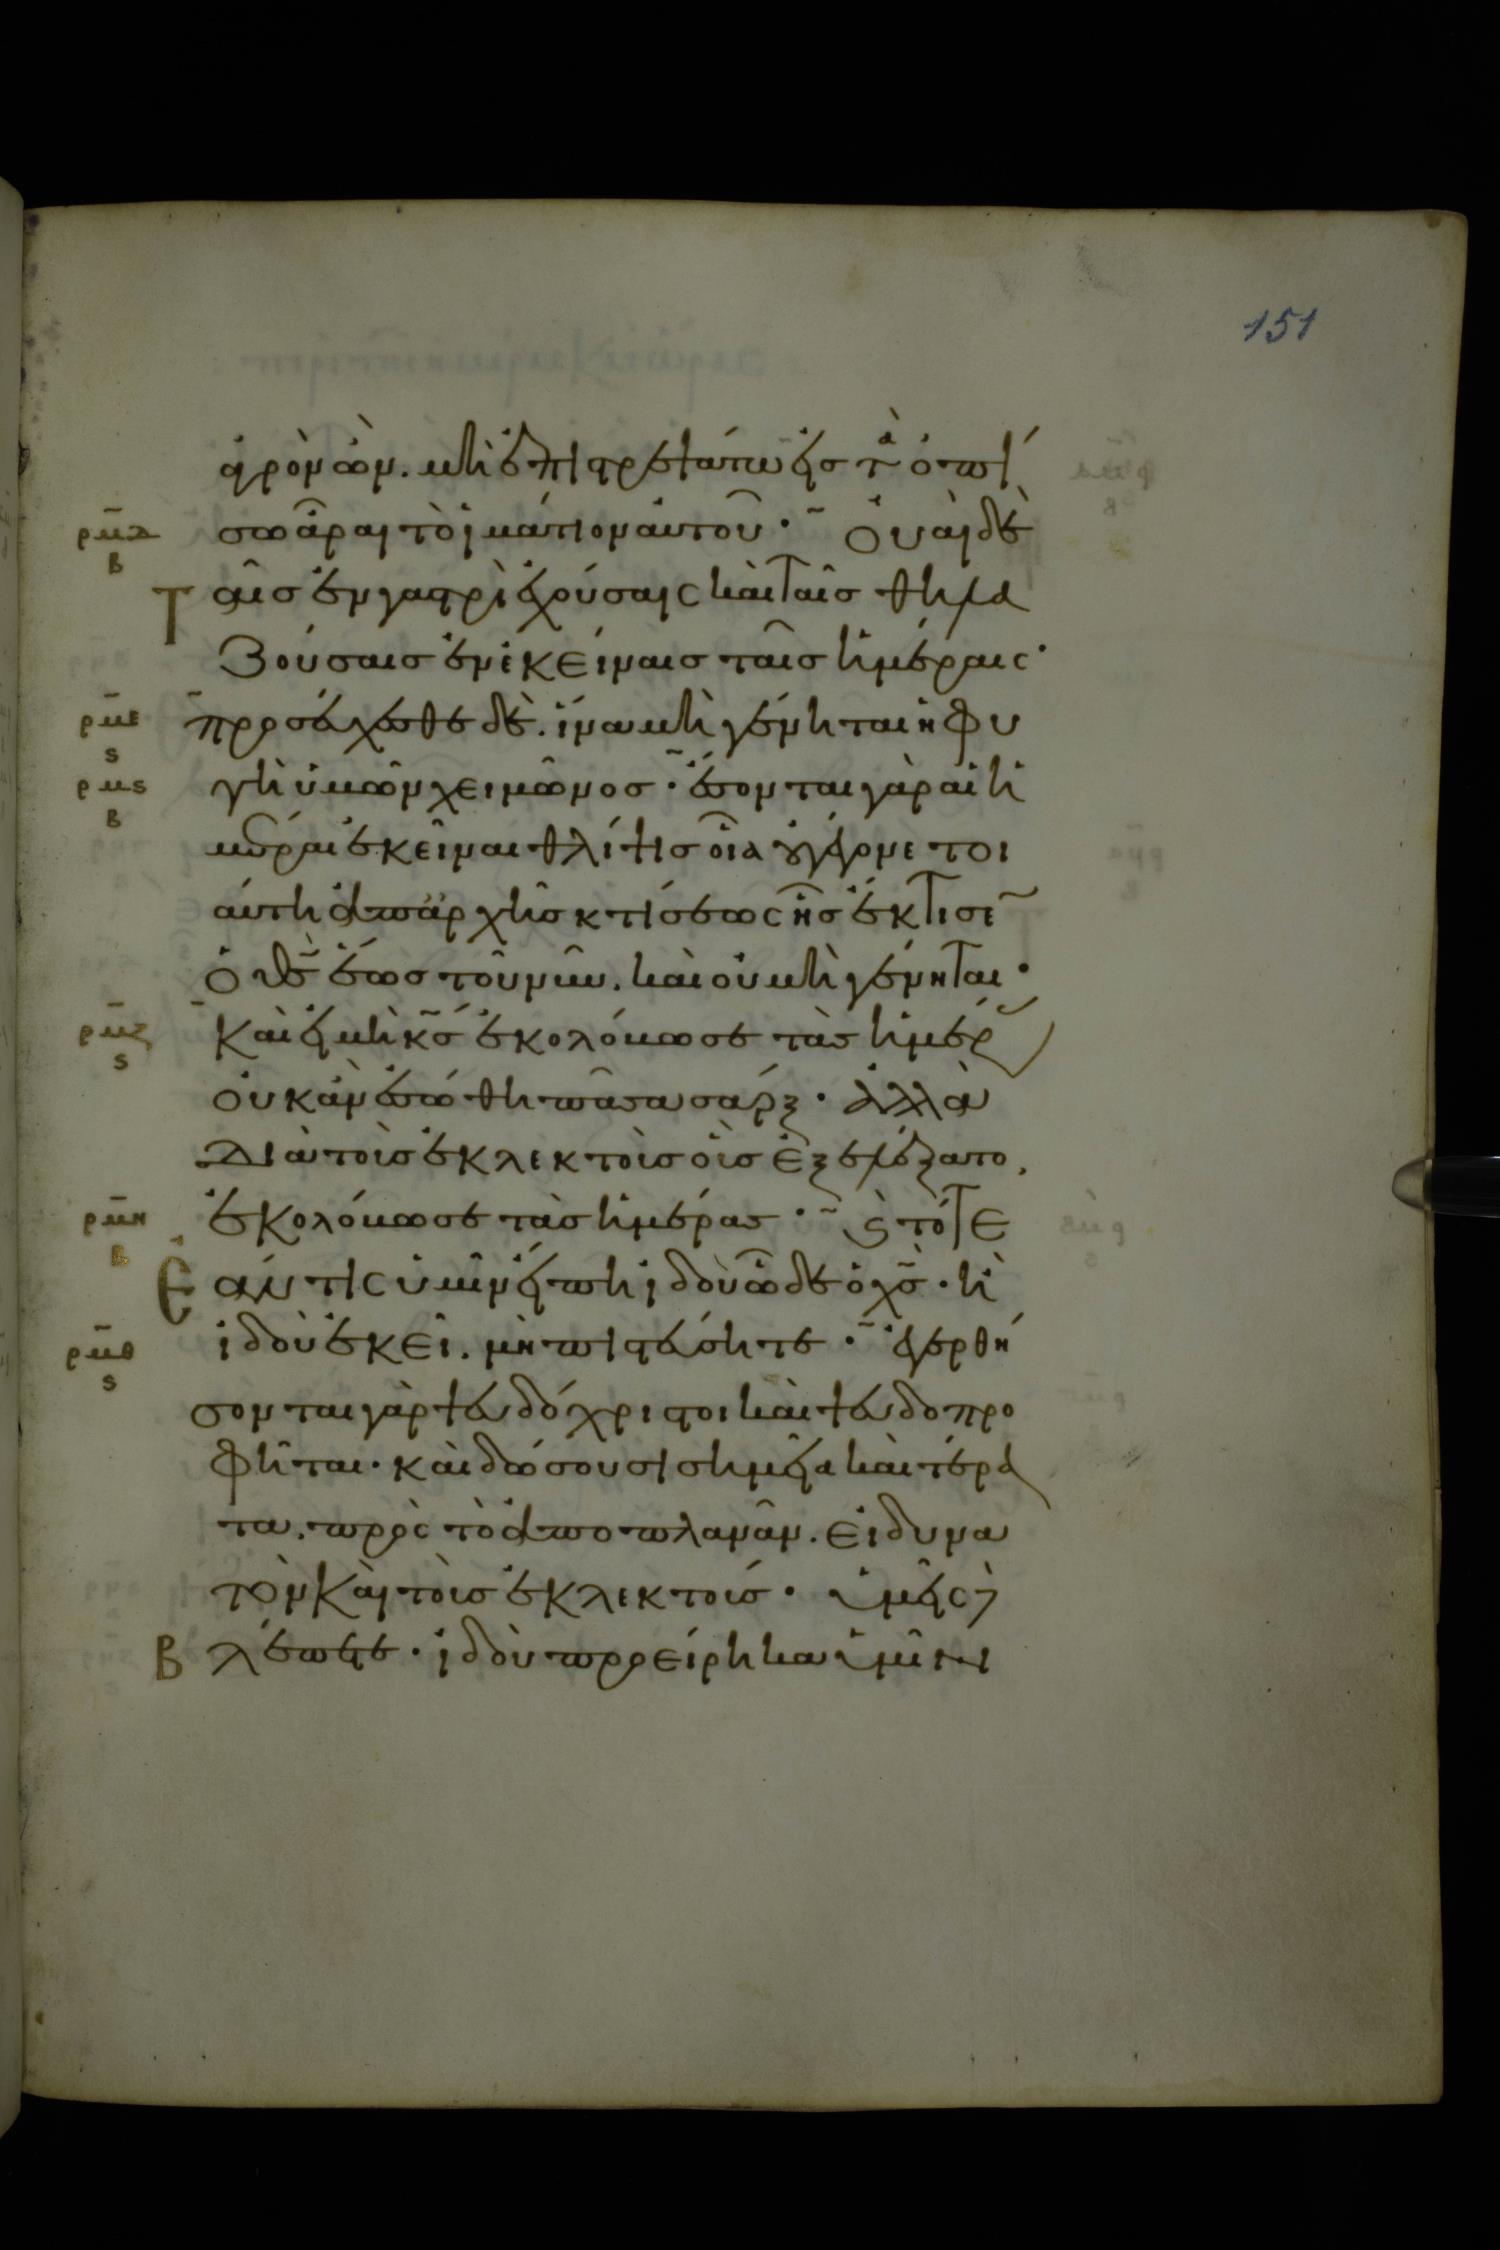 151
ἀγρὸν ὢν. μὴ ἐπιστρεψάτω εἰς τὰ ὀπί
σω ἆραι τὸ ἱμάτιον αὐτοῦ· Οὐαὶ δὲ
ρμδ
β
Ταῖς ἐν γαστρὶ ἐχούσαις καὶ ταῖς θηλα
ζούσαις ἐν ἐκείναις ταῖς ἡμέραις·
προσεύχεσθε δὲ. ἵνα μὴ γένηται ἡ φυ
ρμε
ς
γὴ ὑμῶν χειμῶνος· ἔσονται γὰρ αἱ ἡ
ρμς
β
μέραι ἐκεῖναι θλίψις οἵα οὐ γέγονε τοι
αύτη ἀπαρχῆς κτίσεως ἧς ἔκτισε
ὁ θς ἕως τοῦ νῦν. καὶ οὐ μὴ γένηται·
Καὶ εἰ μὴ κς ἐκολόβωσε τὰς ἡμέρ
ρμζ
ς
οὐκ ἂν ἐσώθη πᾶσα σάρξ· ἀλλὰ
Διὰ τοὺς ἐκλεκτοὺς οὓς ἐξελέξατο.
ἐκολόβωσε τὰς ἡμέρας· ϛ τότε
ρμη
β
Ἐάν τις ὑμῖν εἴπῃ ἰδοὺ ὧδε ὁ χς· ἢ
ἰδοὺ ἐκεῖ. μὴ πιστεύσητε· ἐγερθή
ρμθ
ς
σονται γὰρ ψευδόχριστοι καὶ ψευδοπρο
φῆται· καὶ δώσουσι σημεῖα καὶ τέρα
τα. πρὸς τὸ ἀποπλανᾶν. εἰ δυνα
τὸν καὶ τοὺς ἐκλεκτούς· ὑμεῖς
Βλέπετε· ἰδοὺ προείρηκα ὑμῖν